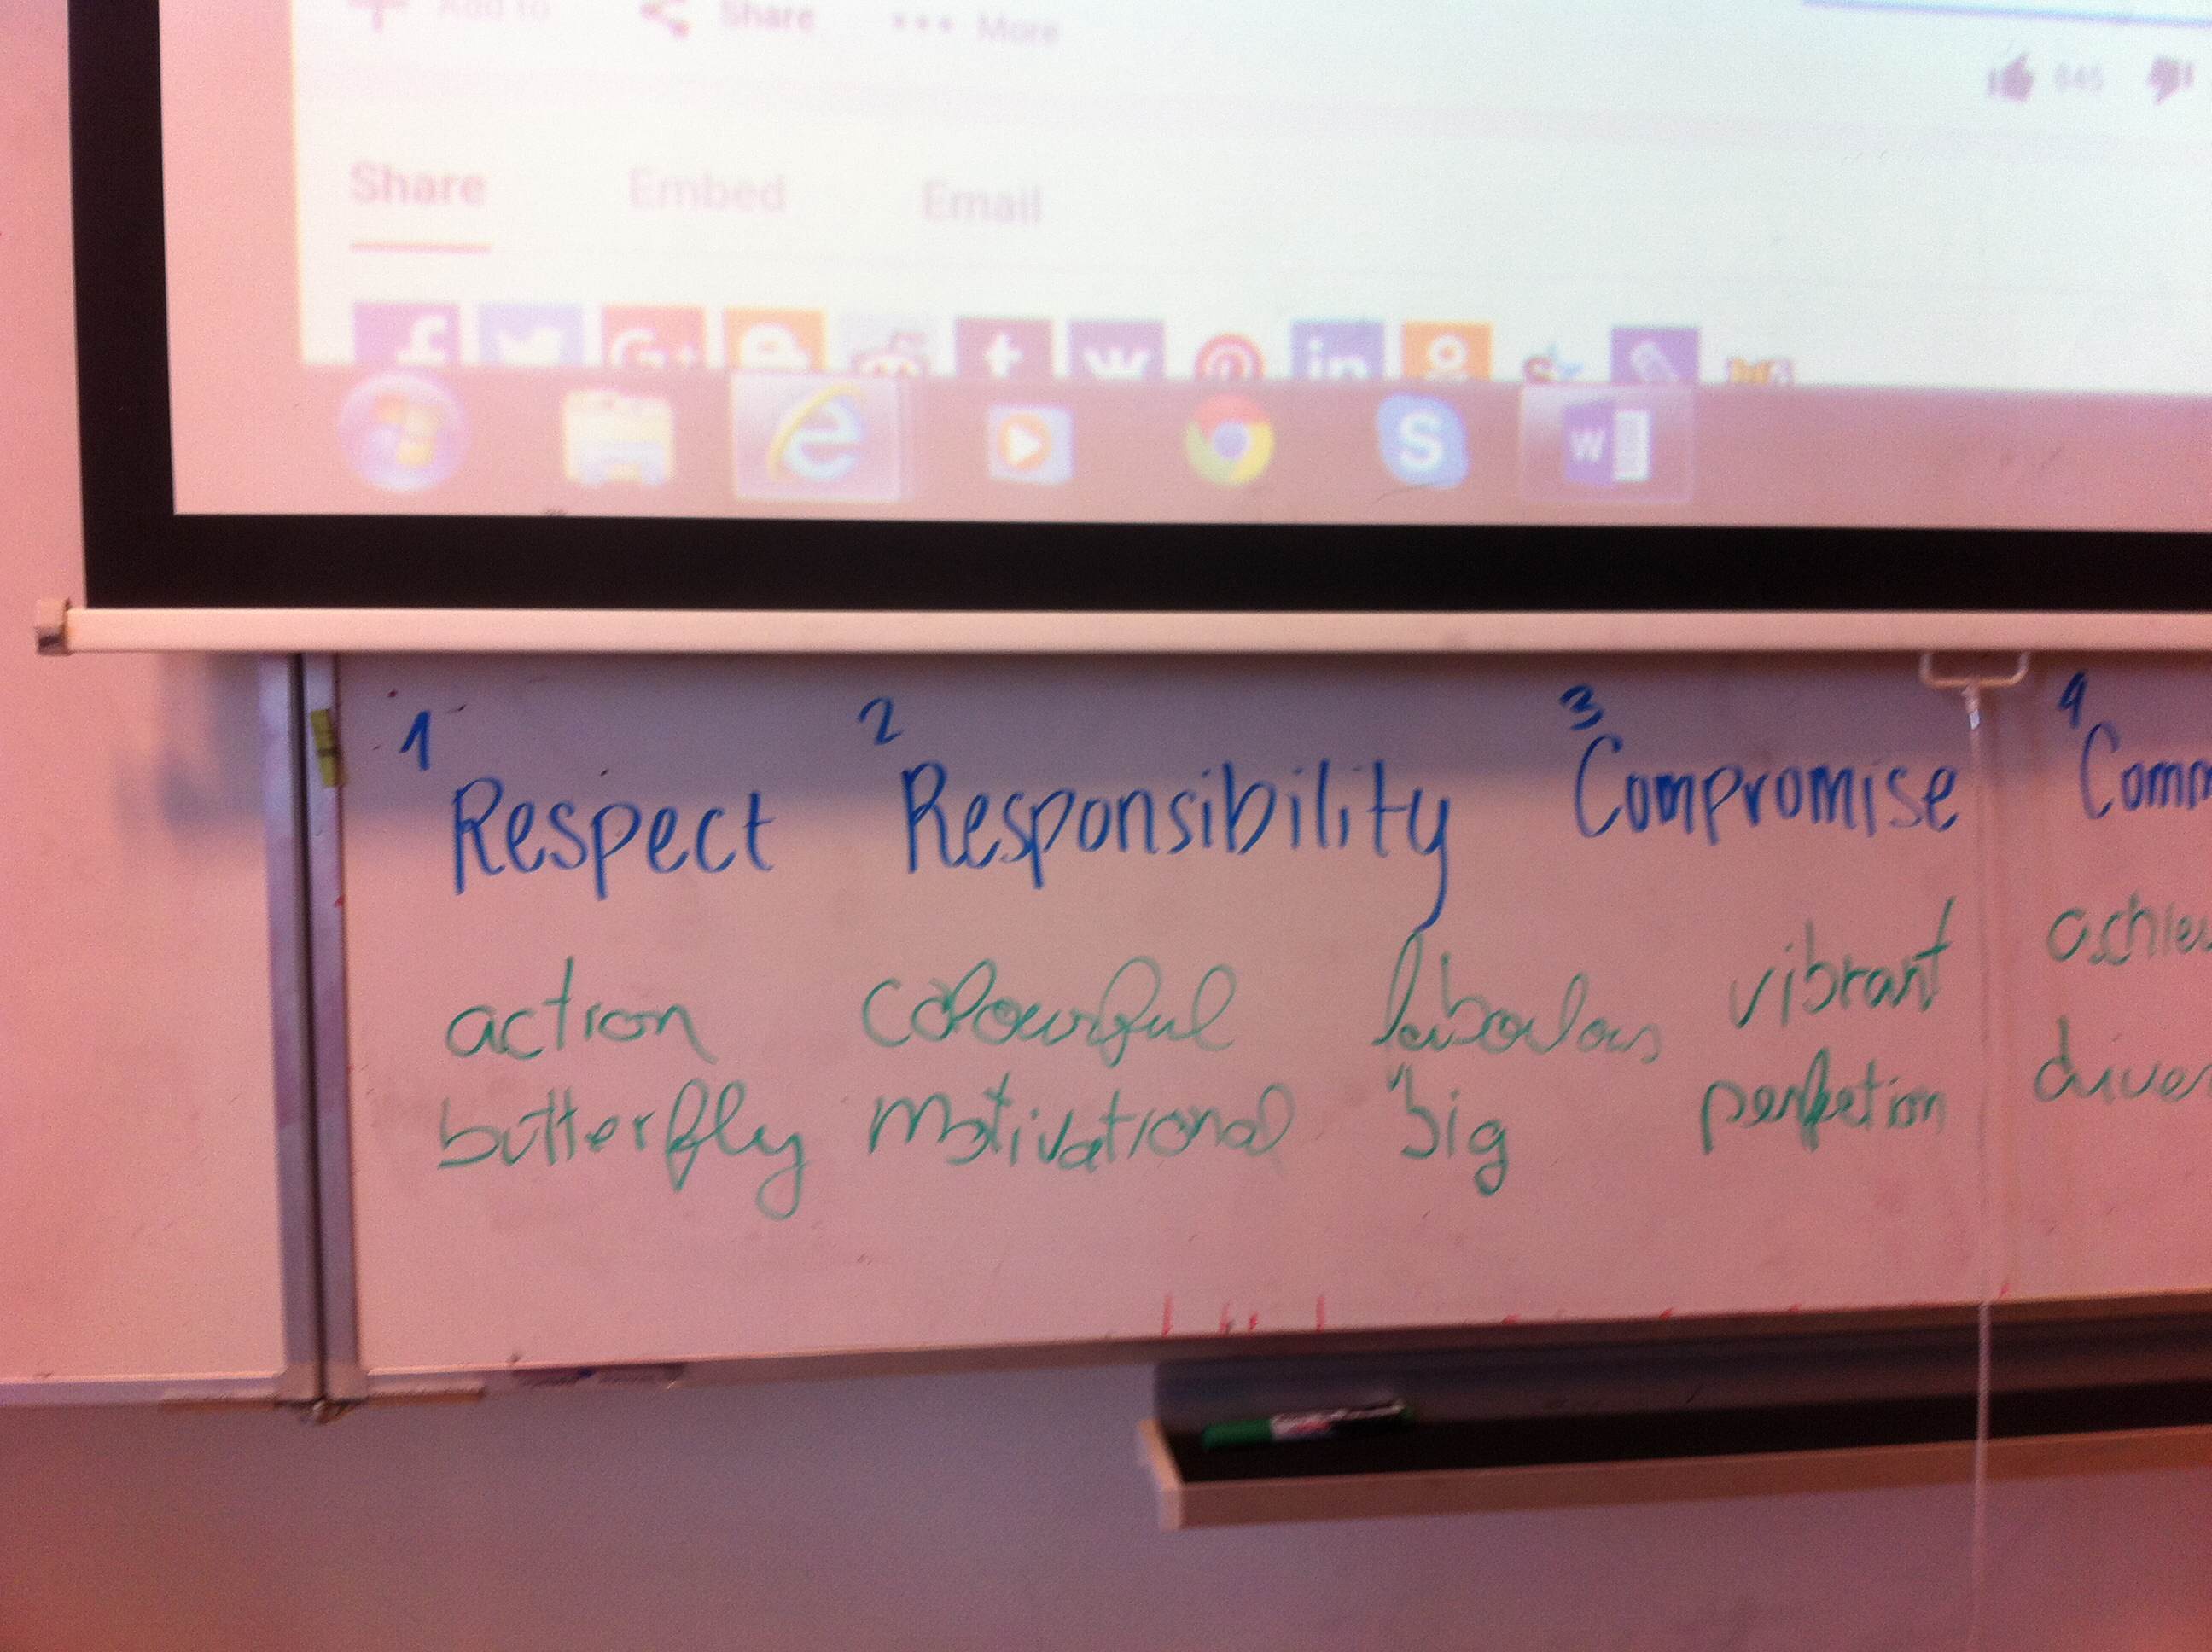 Add to Share More
845
Share Embed Email
f G+ t in
S W
1 2 3 4
Respect Responsibility Compromise Comm
action colourful vibrant achiev
butterfly motivational big perfection divers